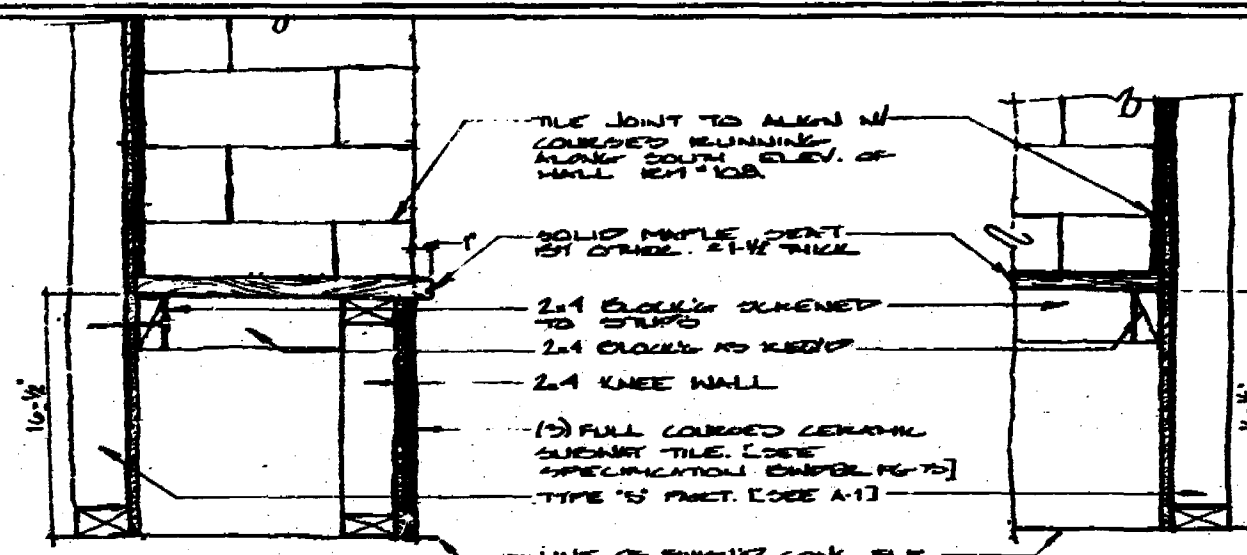 TILE JOINT TO ALIGN W/
COURSES RUNNING
ALONG SOUTH ELEV. OF
WALL RM #108.
1"
SOLID MAPLE SEAT
BY OTHER. 1-1/2" THICK
2x4 BLOCK'G SCREWED
TO STUDS
2x4 BLOCK'G AS REQ'D
2x4 KNEE WALL
16-1/2"
(3) FULL COURSED CERAMIC
SUBWAY TILE. [SEE
SPECIFICATION BINDER PG 75]
TYPE "5" PART. [SEE A-1]
LINE OF CONC.